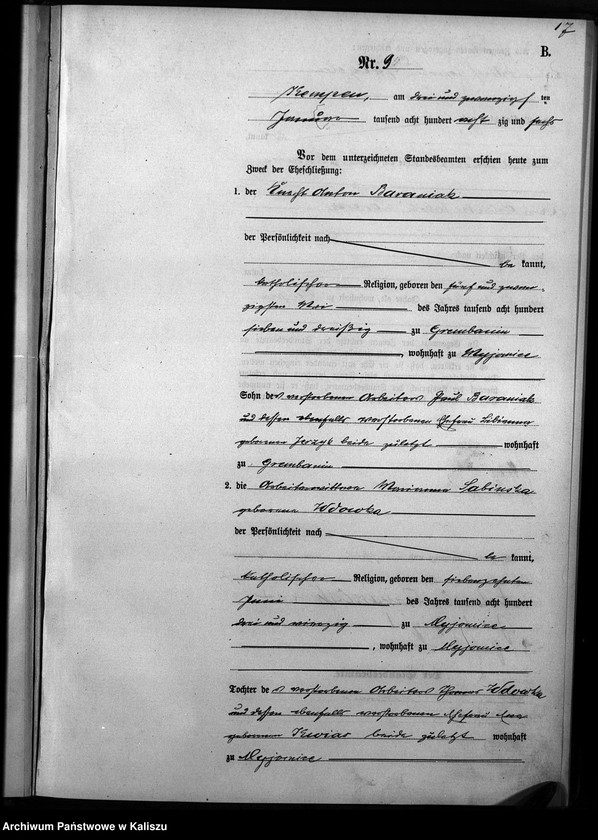 17
B.
Nr. 9
Kempen, am drei und zwanzigsten
Januar tausend acht hundert acht zig und sechs
Vor dem unterzeichneten Standesbeamten erschien heute zum
Zweck der Eheschließung:
1. der Knecht Anton Baraniak
der Persönlichkeit nach
be kannt,
katholischer Religion, geboren den fünf und zwan
zigsten Mai des Jahres tausend acht hundert
sieben und dreißig zu Grembanin
, wohnhaft zu Myjomice
Sohn des verstorbenen Arbeiters Paul Baraniak
und dessen ebenfalls verstorbenen Ehefrau
geborenen Jerzyk beide zuletzt wohnhaft
zu Grembanin
2. die Arbeiterwittwe Marianna Sabinska
geborene Wdowka
der Persönlichkeit nach
be kannt,
katholischer Religion, geboren den siebenzehnten
Juni des Jahres tausend acht hundert
drei und vierzig zu Myjomice
, wohnhaft zu Myjomice
Tochter des verstorbenen Arbeiters Thomas Wdowka
und dessen ebenfalls verstorbenen Ehefrau
geborenen beide zuletzt wohnhaft
zu Myjomice
Archiwum Państwowe w Kaliszu